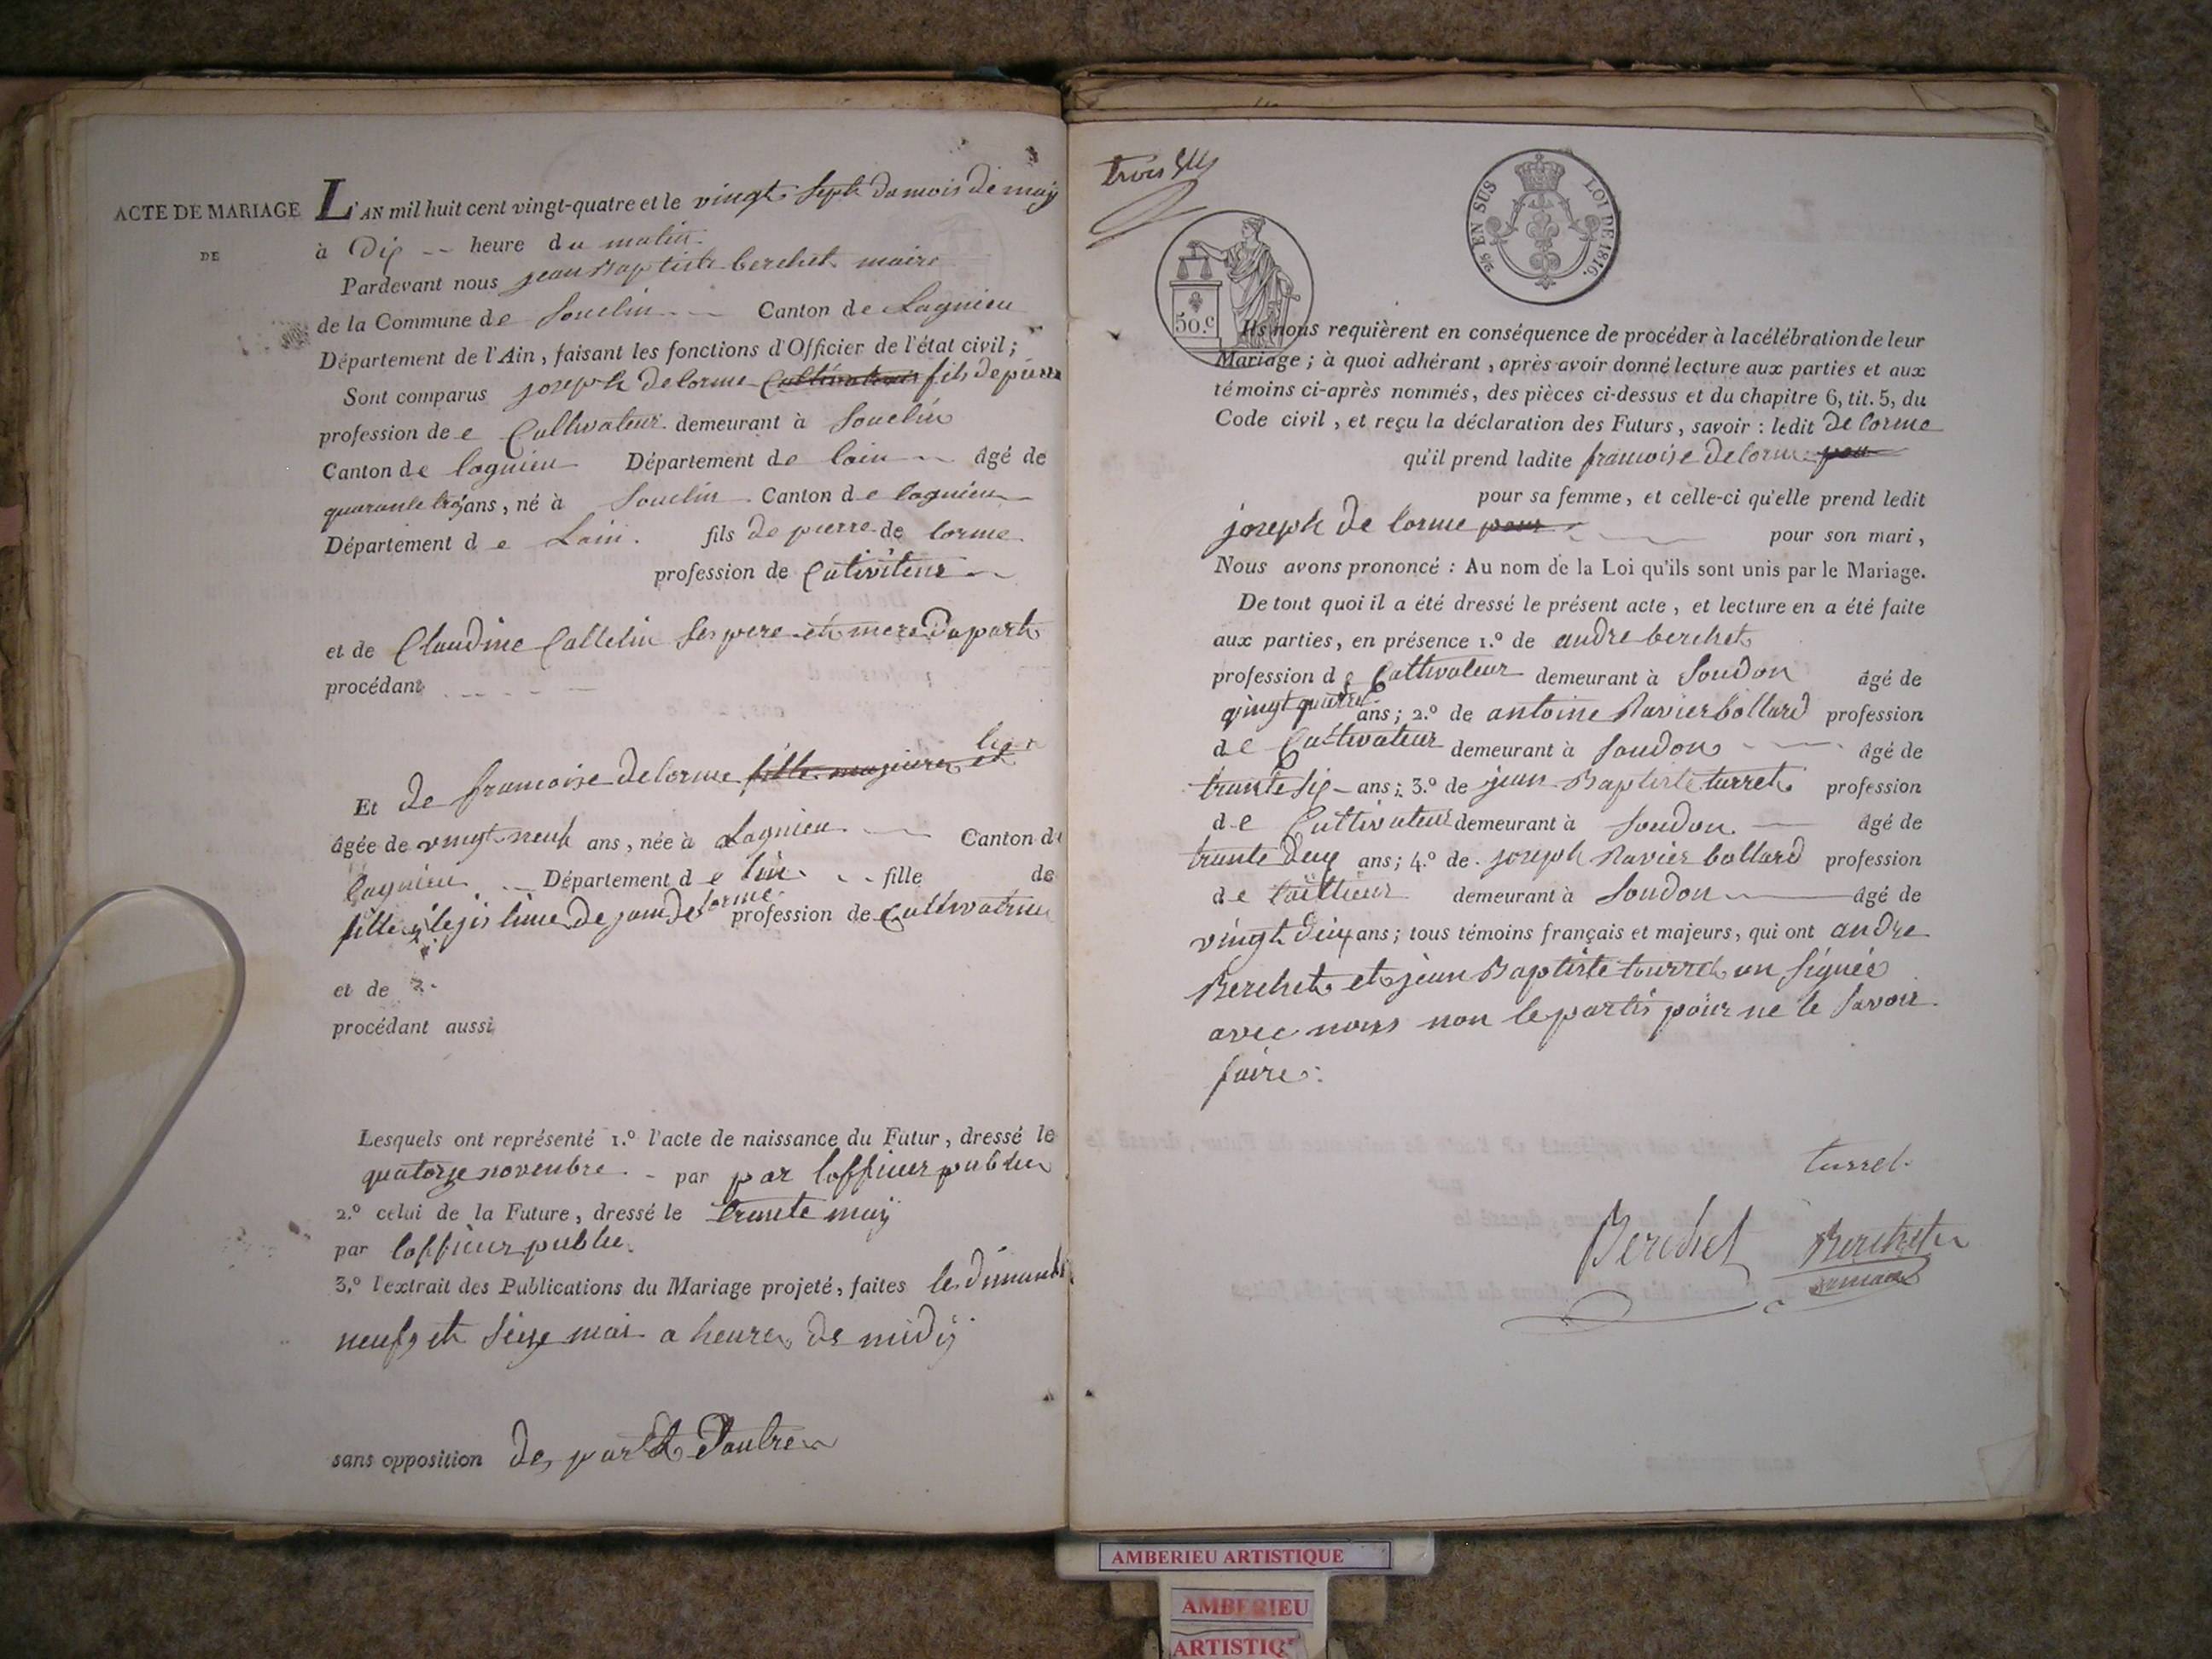 ACTE DE MARIAGE
DE
L'AN mil huit cent vingt-quatre et le vingt sept du mois de may
à Dix -- heure du matin
Pardevant nous jean Baptiste berchet maire
de la Commune de Souclin -- Canton de Lagnieu
Département de l'Ain, faisant les fonctions d'Officier de l'état civil;
Sont comparus joseph delorme Cultivateur fils de pierre
profession de e Cultivateur demeurant à Souclin
Canton de lagnieu Département de lain -- âgé de
quarante ans, né à Souclin Canton de lagnieu
Département d e Lain. fils de pierre de lorme
profession de Cutiviteur
et de Claudine ses pere et mere Dupart
procédant
Et de francoise delorme fille majeure et
âgée de vingt neuf ans, née à Lagnieu -- Canton de
lagnieu -- Département d e lin -- fille de
fille de delorme profession de Cultivatrieu
et de
procédant aussi
Lesquels ont représenté 1.º l'acte de naissance du Futur, dressé le
quatorze novembre - par par lofficier publier
2.º celui de la Future, dressé le trente may
par lofficier publie.
3.º l'extrait des Publications du Mariage projeté, faites les dimanch
neufs et seize mai a heure de midy
sans opposition de part et Dautre
trois
5/5 EN SUS LOI DE 1816.
50.c
Ils nous requièrent en conséquence de procéder à la célébration de leur
Mariage; à quoi adhérant, après avoir donné lecture aux parties et aux
témoins ci-après nommés, des pièces ci-dessus et du chapitre 6, tit. 5, du
Code civil, et reçu la déclaration des Futurs, savoir: ledit De lorme
qu'il prend ladite francoise delorme pou
pour sa femme, et celle-ci qu'elle prend ledit
joseph de lorme pour -- pour son mari,
Nous avons prononcé: Au nom de la Loi qu'ils sont unis par le Mariage.
De tout quoi il a été dressé le présent acte, et lecture en a été faite
aux parties, en présence 1.º de andre berchet
profession d e Cultivateur demeurant à Soudon âgé de
vingt quatre ans; 2.º de antoine Ravier bollard profession
d e Cultivateur demeurant à Soudon -- âgé de
trante six - ans; 3.º de jean Baptiste turret profession
d e Cultivateur demeurant à Soudon -- âgé de
trante deux ans; 4.º de joseph Ravier bollard profession
d e tailleur demeurant à Soudon -- âgé de
vingt deux ans; tous témoins français et majeurs, qui ont andre
Berchet et jean Baptiste tourret on signée
avec nous non le partis pour ne le savoir
faire.
turret
Berchet Berchet
maire
AMBERIEU ARTISTIQUE
AMBERIEU
ARTISTIQ